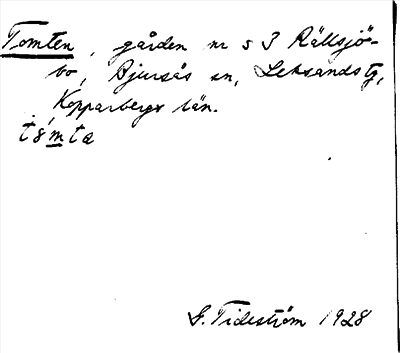 Tomten, gården nr 53 Rällsjö-
bo, Bjursås sn, Leksands tg,
Kopparbergs län.
tómta
G. Tideström 1928